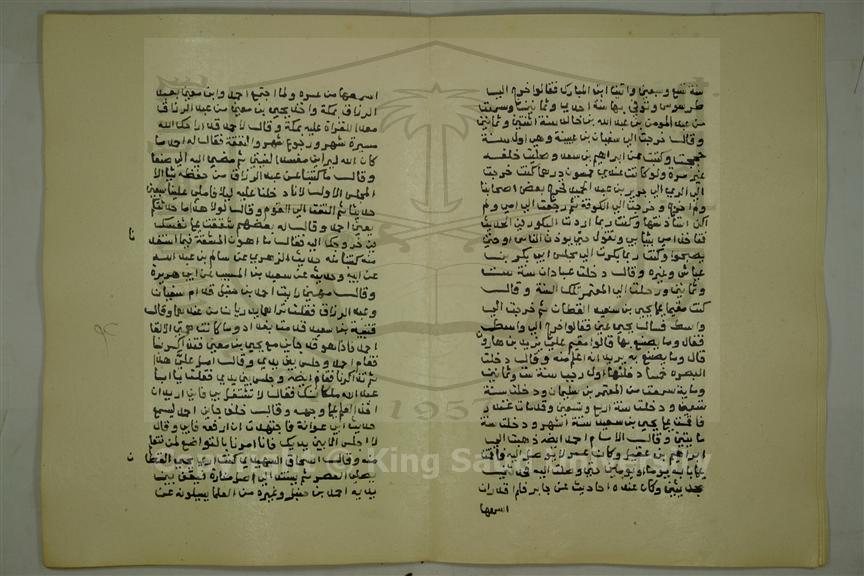 سنة تسع وسبعين واتينا ابن المبارك فقالوا خرج اليا
طرسوس وتوفي بها سنة احدى وثمانين وسمعت
من عبد المومن بن عبد الله بن خالد سنة اثنتين وثمانين
وقال خرجت الى سفيان بن عيينة وهي اول سنة
حججت وكتبت عن ابراهيم بن سعد وصليت خلفه
غير مرة ولو كان عندي خمسون درهما كنت خرجت
الى الري الى جرير بن عبد الحميد فخرج بعض اصحابنا
ولم اخرج وخرجت الى الكوفة ثم رجعت الى امي ولم
اكن استأذنتها وكنت ربما اردت البكور في الحديث
فتأخذ امي بثيابي وتقول حتى يوذن الناس او حتى
يصبحوا وكنت ربما بكرت الى مجلس ابي بكر بن
عياش وغيره وقال دخلت عبادان سنة ست
وثمانين ورحلت الى المعتمر تلك السنة وقال
كنت مقيما على يحيى بن سعيد القطان ثم خرجت الى
واسط فسال يحيى عني فقالوا خرج الى واسط
فقال وما يصنع بها قالوا مقيم على يزيد بن هارون
قال وما يصنع به يريد انه اعلم منه وقال دخلت
البصرة خمسا دخلتها اول رجب سنة ست وثمانين
وماية سمعت من المعتمر بن سليمان ودخلت سنة
تسعين ودخلت سنة اربع وتسعين وقد مات غندر
فاقمت على يحيى بن سعيد ستة اشهر ودخلت سنة
مايتين وقال الامام احمد ايضه ذهبت الى
ابراهيم بن عقيل وكان عسرا لا يوصل اليه فاقمت
على بابه يوما او يومين حتى وصلت اليه فحدثني
بحديثين وكان عنده احاديث عن جابر فلم اقدر ان
اسمعها
اسمعها من عسره ولما اجتمع احمد وابن معين بعبد
الرزاق بمكة واخذ يحيى بن معين من عبد الرزاق
معدا للقراة عليه بمكة وقال لاحمد قد اراحك الله
مسيرة شهر ورجوع شهر والنفقة فقال له احمد ما
كان الله ليراني مفسدا لنيتي ثم مضى اليه الى صنعا
وقال ما كتبنا عن عبد الرزاق من حفظه شيا الا
المجلس الاول لانا دخلنا عليه ليلا فاملى علينا سبعين
حديثا ثم التفت الى القوم وقال لولا هذا ما حدثتكم
يعني احمد وقال له بعضهم شققت على نفسك
في خروجك اليه فقال ما اهون المشقة فيما استفدنا
منه كتبنا عنه حديث الزهري عن سالم بن عبد الله
عن ابيه وحديثه عن سعيد بن المسيب عن ابي هريرة
وقال رايت احمد بن حنبل قدام سفيان
وعبد الرزاق وقال
قتيبة بن سعيد قدمت بغداد وما كانت همتي الا لقا
احمد فاذا هو قد جاني مع يحيى بن معين فتذاكرنا
فقام احمد وجلس بين يدي وقال امل علي هذا
ثم تذاكرنا فقام ايضه وجلس بين يدي فقلت يا ابا
عبد الله اجلس مكانك فقال لا تشتغل بي فاني اريد ان
اخذ العلم على وجهه وقال خلف جاني احمد ليسمع
حديث ابي عوانة فاجتهدت ان ارفعه فابى وقال
لا اجلس الا بين يديك فانا امرنا بالتواضع لمن نتعلم
منه وقال اسحاق الشهيدي كنت ارى يحيى القطان
يصلي العصر ثم يستند الى اصل منارة فيقف بين
يديه احمد بن حنبل وغيره من العلما يسيلونه عن